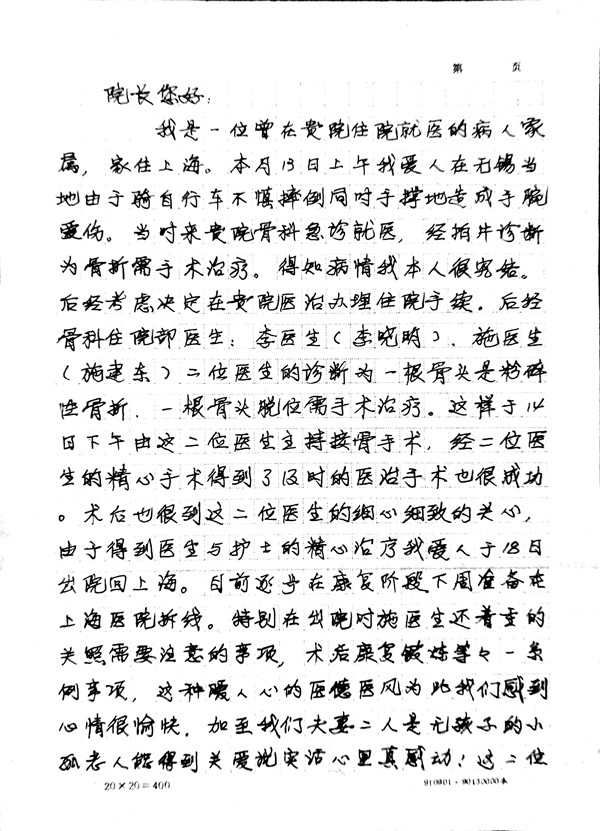 第 页
院长您好：
我是一位曾在贵院住院就医的病人家
属，家住上海。本月13日上午我爱人在无锡当
地由于骑自行车不慎摔倒同时手撑地造成手腕
受伤。当时来贵院骨科急诊就医，经拍片诊断
为骨折需手术治疗。得知病情我本人很宛结。
后经考虑决定在贵院医治办理住院手续。后经
骨科住院部医生：李医生（李晓明）、施医生
（施建东）二位医生的诊断为一根骨头是粉碎
性骨折，一根骨头脱位需手术治疗。这样于14
日下午由这二位医生主持接骨手术，经二位医
生的精心手术得到了及时的医治手术也很成功
。术后也很到这二位医生的细心细致的关心，
由于得到医生与护士的精心治疗我爱人于18日
出院回上海。目前逐步在康复阶段下周准备在
上海医院拆线。特别在出院时施医生还着重的
关照需要注意的事项，术后康复锻炼等々一条
例事项，这种暖人心的医德医风为此我们感到
心情很愉快，加至我们夫妻二人是无孩子的小
孤老人能得到关爱说实话心里真感动！这二位
20×20＝400
910901·9013000本